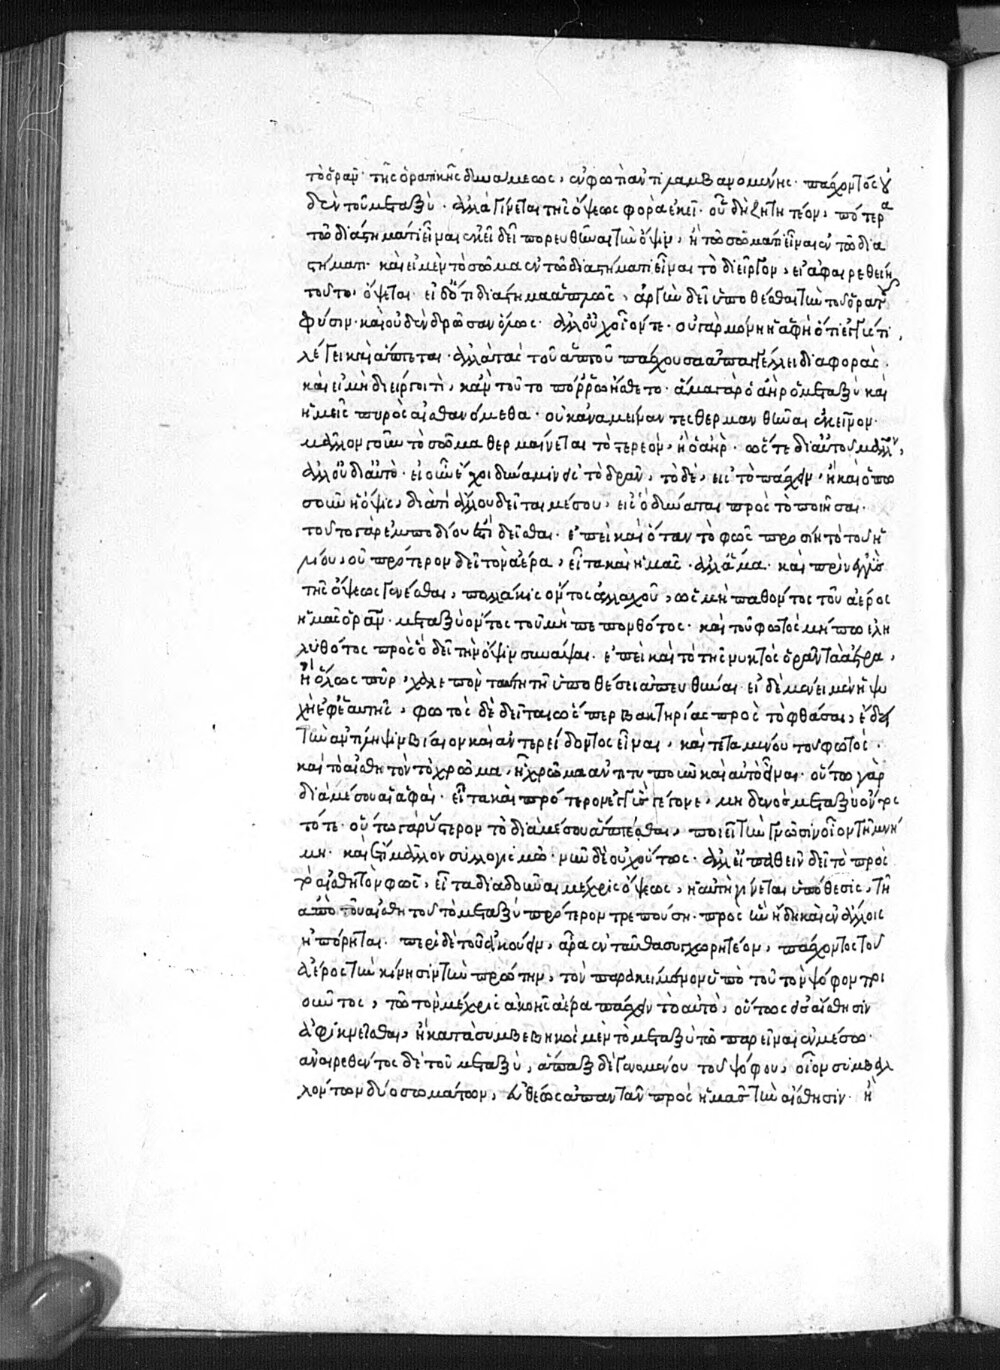 τὸ ὁρᾶν· τῆς ὁρατικῆς δυνάμεως, ἐν φωτὶ ἀντιλαμβανομένης· πάσχοντος οὐ
δὲν τοῦ μεταξύ· ἀλλὰ γίνεται τῆς ὄψεως φορὰ ἐκεῖ· οὗ δὴ ζητητέον, πότερα
τῷ διάστημά τι εἶναι ἐκεῖ δεῖ πορευθῆναι τὴν ὄψιν, ἢ τῷ σῶμά τι εἶναι ἐν τῷ δια
στήματι· καὶ εἰ μὲν τὸ σῶμα ἐν τῷ διαστήματι εἶναι τὸ διεῖργον, εἰ ἀφαιρεθείη
τοῦτο· ὄψεται· εἰ δ' ὅτι διάστημα ἁπλῶς, ἀργὴν δεῖ ὑποθέσθαι τὴν τοῦ ὁρατοῦ
φύσιν· καὶ οὐδὲν δρῶσαν ὅλως· ἀλλ' οὐχ οἷόν τε· οὐ γὰρ μόνη ἡ ἁφὴ ὅτι ἐγγύς τι,
λέγει καὶ ἅπτεται· ἀλλὰ τὰς τοῦ ἁπτοῦ πάσχουσα ἀπαγγέλλει διαφοράς·
καὶ εἰ μὴ διείργοι τὶ, κἂν τοῦτο πόρρω ᾔσθετο· ἅμα γὰρ ὁ ἀὴρ ὁ μεταξὺ καὶ
ἡμεῖς πυρὸς αἰσθανόμεθα· οὐκ ἀναμείναντες θερμανθῆναι ἐκεῖνον·
μᾶλλον γοῦν τὸ σῶμα θερμαίνεται τὸ στερεὸν, ἢ ὁ ἀὴρ· ὥστε δι' αὐτοῦ μᾶλλον,
ἀλλ' οὐ δι' αὐτὸ· εἰ οὖν ἔχοι δύναμιν εἰς τὸ δρᾶν, τὸ δὲ, εἰς τὸ πάσχειν, ἢ καὶ ὁπω
σοῦν ἡ ὄψις, διὰ τί ἄλλου δεῖται μέσου, εἰς ὃ δύναται πρὸς τὸ ποιῆσαι·
τοῦτο γὰρ ἐμποδίου ἐστὶ δεῖσθαι· ἐπεὶ καὶ ὅταν τὸ φῶς προσίῃ τὸ τοῦ ἡ
λίου, οὐ πρότερον δεῖ τὸν ἀέρα, εἶτα καὶ ἡμᾶς· ἀλλ' ἅμα· καὶ πρὶν ἐγγὺς
τῆς ὄψεως γενέσθαι, πολλάκις ὄντος ἀλλαχοῦ, ὡς μὴ παθόντος τοῦ ἀέρος
ἡμᾶς ὁρᾶν· μεταξὺ ὄντος τοῦ μὴ πεπονθότος· καὶ τοῦ φωτὸς μήπω ἐλη
λυθότος πρὸς ὃ δεῖ τὴν ὄψιν συνάψαι· ἐπεὶ καὶ τὸ τῆς νυκτὸς ὁρᾶν τὰ ἄστρα,
ἢ ὅλως πῦρ, χαλεπὸν ταύτῃ τῇ ὑποθέσει ἀπευθῦναι· εἰ δὲ μένει μὲν ἡ ψυ
χὴ ἐφ' ἑαυτῆς, φωτὸς δὲ δεῖται ὥσπερ βακτηρίας πρὸς τὸ φθάσαι, ἔδει
τὴν ἀντίληψιν βίαιον καὶ ἀντερείδοντος εἶναι, καὶ τεταμένου τοῦ φωτός·
καὶ τὸ αἰσθητὸν τὸ χρῶμα, ᾗ χρῶμα ἀντιτυποῦν καὶ αὐτὸ εἶναι· οὕτω γὰρ
διὰ μέσου αἱ ἁφαί· εἶτα καὶ πρότερον ἐγγὺς γέγονε, μηδενὸς μεταξὺ ὄντος
τότε· οὕτω γὰρ ὕστερον τὸ διὰ μέσου ἅπτεσθαι, ποιεῖ τὴν γνῶσιν οἷον τῇ μνή
μῃ· καὶ ἔτι μᾶλλον συλλογισμῷ· νῦν δὲ οὐχ οὕτως· ἀλλ' εἰ παθεῖν δεῖ τὸ πρὸς
τὸ αἰσθητὸν φῶς, εἶτα διαδοῦναι μέχρις ὄψεως, ἡ αὐτὴ γίνεται ὑπόθεσις, τῇ
ἀπὸ τοῦ αἰσθητοῦ τὸ μεταξὺ πρότερον τρεπούσῃ· πρὸς ἣν ἤδη καὶ ἐν ἄλλοις
ἠπόρηται· περὶ δὲ τοῦ ἀκούειν, ἆρα ἐνταῦθα συγχωρητέον, πάσχοντος τοῦ
ἀέρος τὴν κίνησιν τὴν πρώτην, τὸν παρακείμενον ὑπὸ τοῦ τὸν ψόφον ποι
οῦντος, τῷ τὸν μέχρις ἀκοῆς ἀέρα πάσχειν τὸ αὐτὸ, οὕτως εἰς αἴσθησιν
ἀφικνεῖσθαι, ἢ κατὰ συμβεβηκὸς μὲν τὸ μεταξὺ τῷ παρεῖναι ἐν μέσῳ·
ἀναιρεθέντος δὲ τοῦ μεταξύ, ἅπαξ δὲ γενομένου τοῦ ψόφου, οἷον συμβαλ
λόντων δύο σωμάτων, εὐθέως ἀπαντᾶν πρὸς ἡμᾶς τὴν αἴσθησιν· ἢ